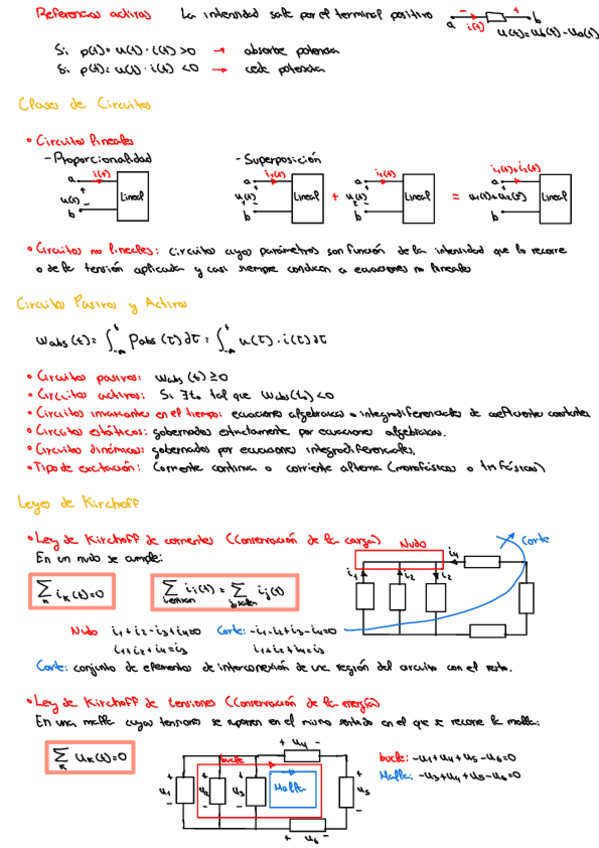 Referencias activas La intensidad sale por el terminal positivo a - + b
i(t) u(t)=ub(t)-ua(t)
Si p(t)=u(t)·i(t)>0 → absorbe potencia
Si p(t)=u(t)·i(t)<0 → cede potencia
Clases de Circuitos
• Circuitos lineales
- Proporcionalidad - Superposición
a i(t) + u(t) - b Lineal a i1(t) + u1(t) - b Lineal + a i2(t) + u2(t) - b Lineal = a i1(t)+i2(t) + u1(t)+u2(t) - b Lineal
• Circuitos no lineales: circuitos cuyos parámetros son función de la intensidad que lo recorre
o de la tensión aplicada y casi siempre conducen a ecuaciones no lineales
Circuitos Pasivos y Activos
Wabs(t)=∫_{-∞}^{t} Pabs(τ)dτ=∫_{-∞}^{t} u(τ)·i(τ)dτ
• Circuitos pasivos: Wabs(t)≥0
• Circuitos activos: Si ∃to tal que Wabs(to)<0
• Circuitos invariantes en el tiempo: ecuaciones algebraicas o integrodiferenciales de coeficiente constantes.
• Circuitos estáticos: gobernados estrictamente por ecuaciones algebraicas.
• Circuitos dinámicos: gobernados por ecuaciones integrodiferenciales.
• Tipo de excitación: Corriente continua o corriente alterna (monofásicos o trifásicos)
Leyes de Kirchoff
• Ley de Kirchoff de corrientes (Conservación de la carga)
En un nudo se cumple:
Nudo i4 Corte
i1 i2 i2
∑k ik(t)=0 ∑i entran ii(t)=∑j salen ij(t)
Nudo i1+i2-i3+i4=0 Corte: -i1-i2+i3-i4=0
i1+i2+i4=i3 i1+i2+i4=i3
Corte: conjunto de elementos de interconexión de una región del circuito con el resto.
• Ley de Kirchoff de tensiones (Conservación de la energía)
En una malla cuyas tensiones se suponen en el mismo sentido en el que se recorre la malla:
∑k uk(t)=0
+ u4 -
bucle
Malla
+ u1 - + u2 - + u3 - + u5 -
+ u6 -
bucle: -u1+u4+u5-u6=0
Malla: -u3+u4+u5-u6=0